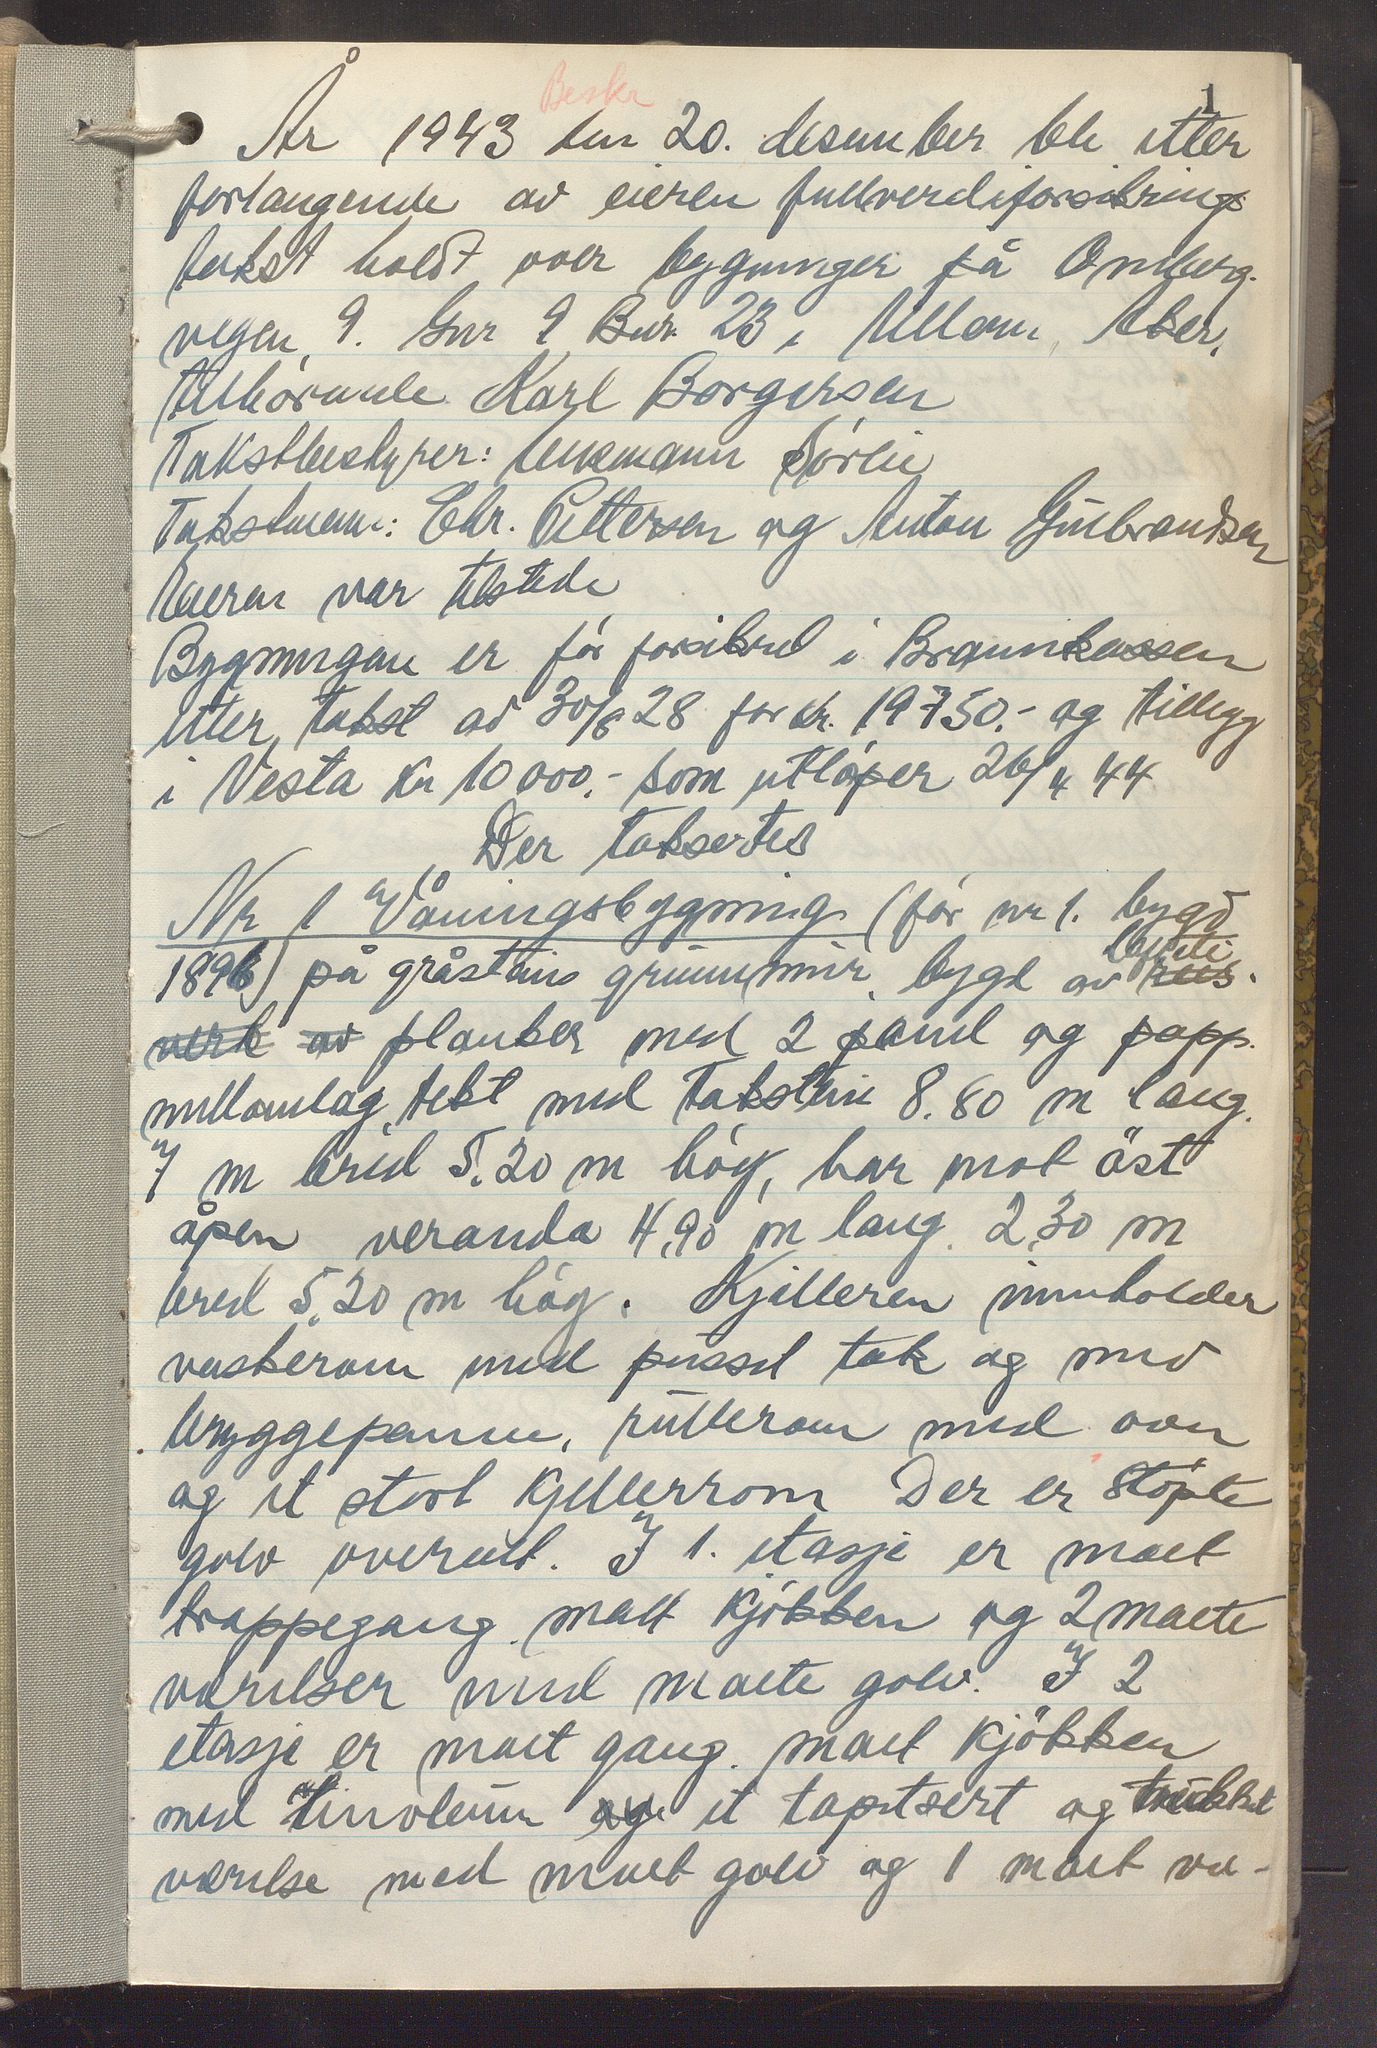 Beskr
1
År 1943 den 20. desember ble etter
forlangende av eieren fullverdiforsikrings
takst holdt over bygninger på Omberg-
vegen 9. Gnr 9 Bnr. 23 i Aker,
tilhörende Karl Borgersen
Takstbestyrer: Lensmann Sörlie
Takstmenn: Chr. Pettersen og Anton Gulbrandsen
Eieren var tilstede
Bygningene er för forsikred i Brannkassen
etter takst av 30/8 28 for kr. 19750.- og tillegg
i Vesta kr 10000.- som utlöper 26/4 44
Der taksertes
Nr 1 Våningsbygning (för nr 1. bygd
1896) på gråsteins grunnmur, bygd av reis-
verk av planker med 2 panel og papp-
mellomlag, tekt med Takstein 8.80 m lang.
7 m bred 5.20 m höy, har mot öst
åpen veranda 4,90 m lang. 2,30 m
bred 5,20 m höy. Kjelleren innholder
vaskerom med pussed tak og med
bryggepanne, rullerom med ovn
og et stort kjellerrom Der er stöpte
golv overalt. I 1. etasje er malt
trappegang, malt kjökken og 2 malte
værelser med malte golv. I 2
etasje er malt gang, malt kjökken
med linoleum og et tapetsert og trukket
værelse med malt golv og 1 malt væ-